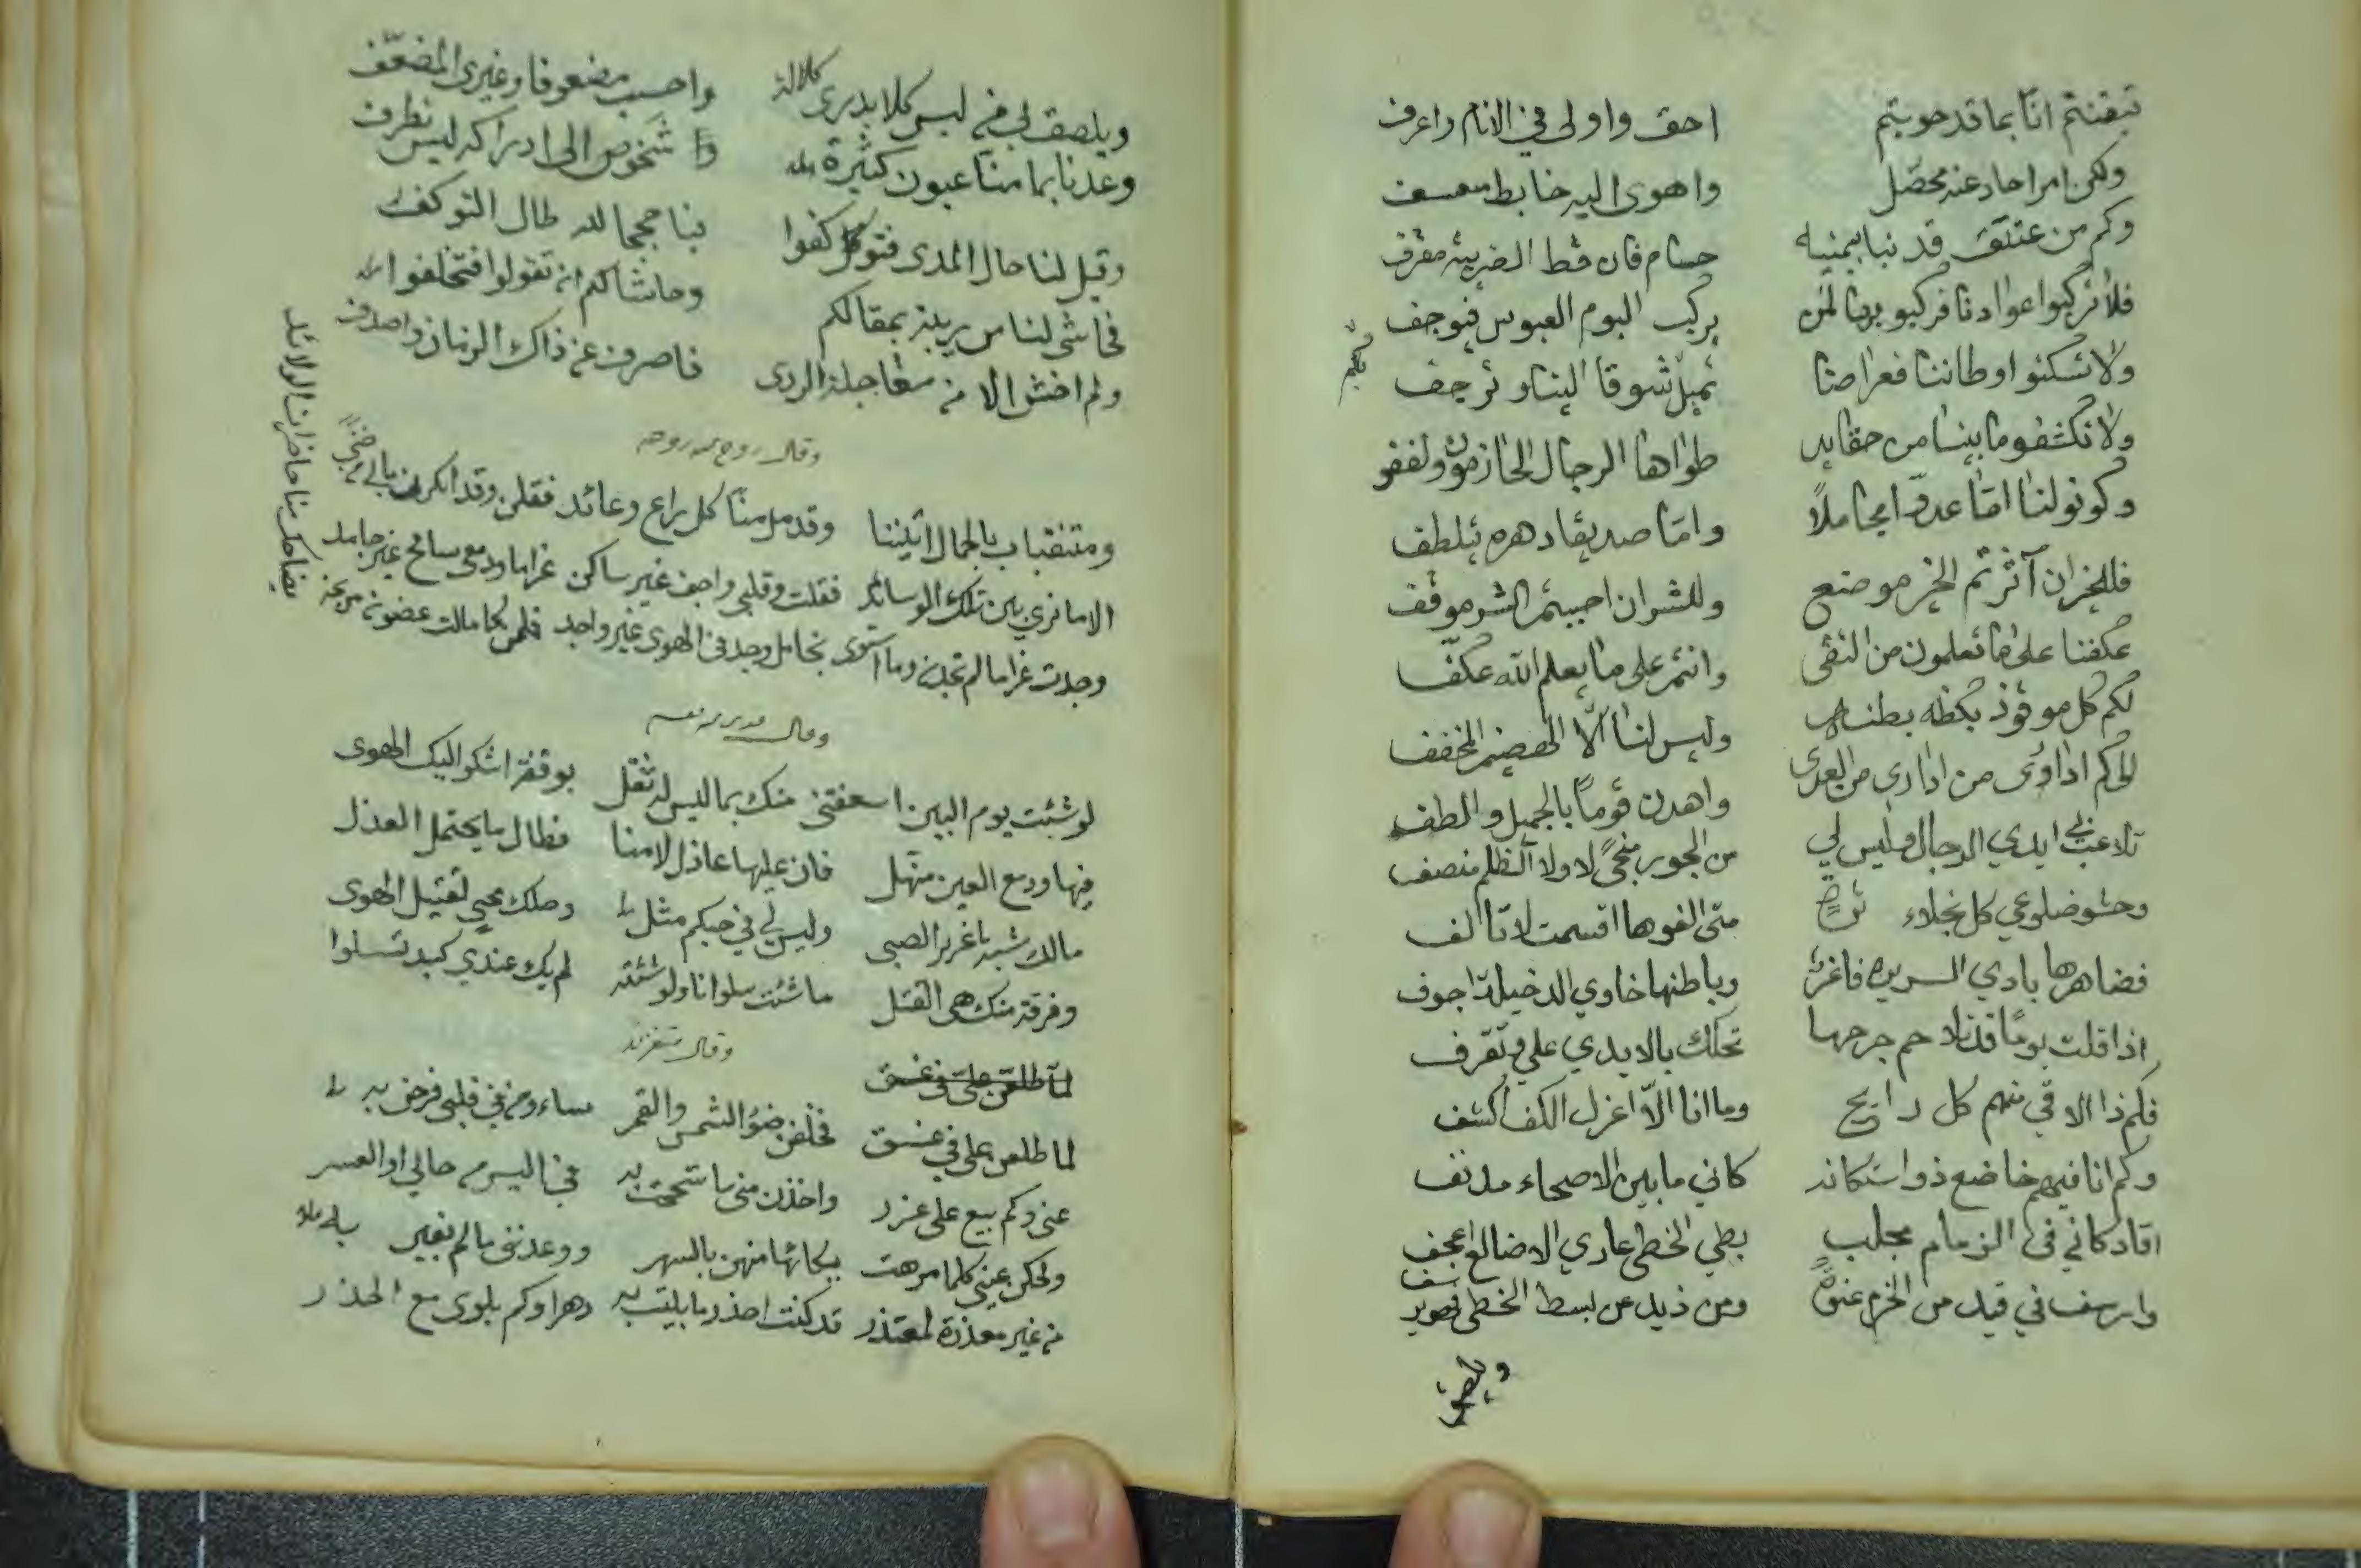 تيقنتم انا بما قد حويتم احق واولى في الانام واعرف
ولكن امرا حاد عنه محصل واهوى اليه خابط متعسف
وكم من عتيق قد نبا بيمينه حسام فان قط الضريبة مقرف
فلا تركبوا اعوادنا فركوبها لمن يركب اليوم العبوس فيوجف
ولا تسكنوا اوطاننا فعراصنا تميل شوقا اليناو ترجف
ولا تكشفو ما بيننا من حقايد طواها الرجال الحازمون ولففو
وكونو لنا اما عدوا مجاملاً واما صديقا دهره يتلطف
فللخيران آثرتم الخير موضع وللشران احببتم الشر موقف
عكفنا على ما تعلمون من التقى وانتم على ما يعلم الله عكف
لكم كل موقوذ بكظه بطنه وليس لنا الا الهضيم المخفف
الى كم اداوى من ادارى من العدى واهدن قوماً بالجميل والطف
تلاعب بي ايدي الرجال وليس لي من الجور منجىً لا ولا الظلم منصف
وحشو ضلوعي كل نجلاء ثرةٍ متى الفوها اقسمت لا تاالف
فضاهرها بادي السريره فاغر وباطنها خاوي الدخيلة اجوف
اذا قلت يوماً قد تلاحم جرحها تحكك بالايدي علي وتقرف
فكم ذا الاقي منهم كل رابح وما انا الا اعزل الكف اكشف
وكم انا فيهم خاضع ذو استكانه كاني ما بين الاصحاء مدنف
اقاد كاني في الزمام مجلب بطي الخطى عاري الاضالع اعجف
وارسف في قيد من الحزم عنوةً ومن ذيد عن بسط الخطى فهو يرسف
ويلصق
ويلصق بي من ليس كلا يدرى كلالة واحسب مضعوفا وغيري المضعف
وعدنا بما منا عيون كثيرة شخوص الى ادراكه ليس تطرف
وقيل لنا حال المدى فتوكفوا بنا حججا لله طال التوكف
فحاشى لنا من ريبة بمقالكم وحاشاكم ان تقولوا فتخلفوا
ولم اخش الا من معاجلة الردى فاصرف عن ذاك الزمان واصدف
وقال روح الله روحه
ومتنقبات بالجمال اتيننا وقد مل منا كل راع وعائد فقلن وقد انكرن ما بي من ضنىً
الا ما ترى بين تلك الوسائد فقلت وقلبي واجف غير ساكن غراما ودمعي سافح غير جامد
وجدت غراما لم تجدن وما استوى تحامل وجد في الهوى غير واجد فلمن كما مالت غضون مريحة
يضاحك منا حاضرات الولائد
وقال قدس سره
لو شئت يوم البين اسعفتني منك بما ليس له ثقل بوقفة اشكو اليك الهوى
فيها ودمع العين منهل فان عليها عاذل لامنا فطال ما يحتمل العذل
مالك شبه يا غرير الصبى وليس لي في حبكم مثل وصلك محيي لقتيل الهوى
وفرقة منك هي القتل ما شئت سلوانا ولو شئته لم يك عندي كبد تسلوا
وقال متغزلا
لما طلعن علي في غسق
لما طلعن علي في غسق فخلفن ضوء الشمس والقمر ساومنني قلبي فزحن به
عني وكم بيع على غرر واخذن مني ما سمحت به في اليسر من حالي او العسر
ولكن عيني كلما مرهت بكائها منهن بالسهر ووعدنني ما لم يفين به
من غير معذرة لمعتذر قد كنت احذر ما بليت به دهرا وكم بلوى مع الحذر